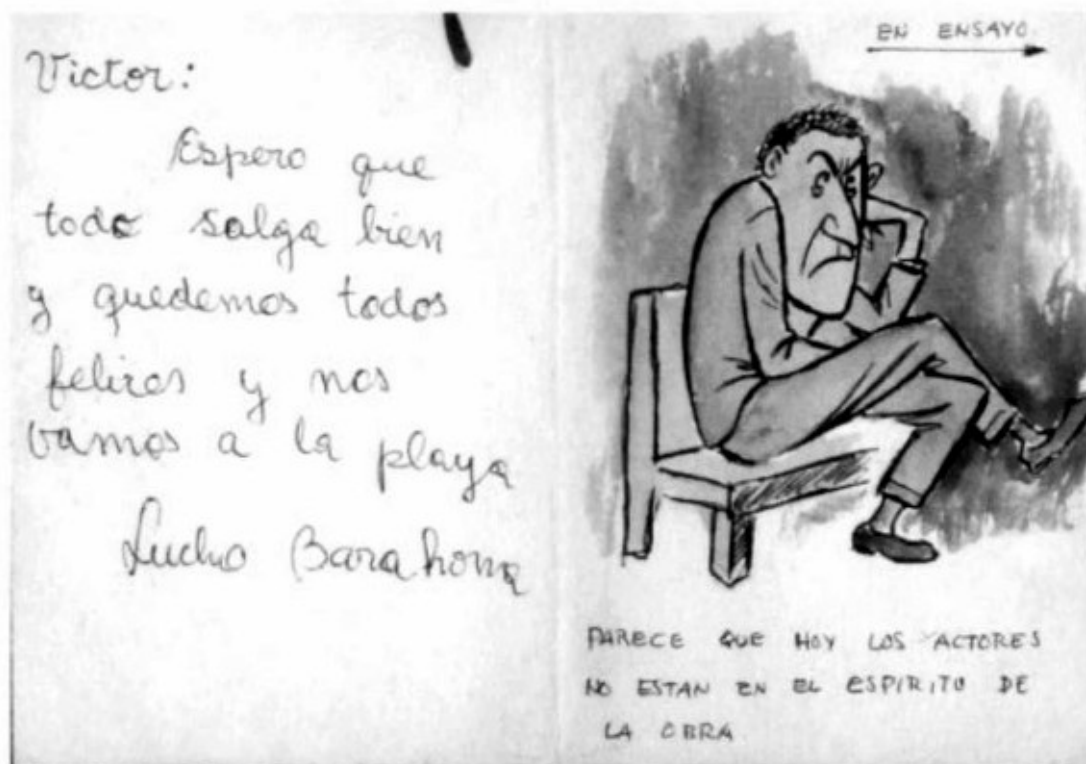 Victor:
Espero que
todo salga bien
y quedemos todos
felices y nos
vamos a la playa
Lucho Barahona
EN ENSAYO
PARECE QUE HOY LOS ACTORES
NO ESTAN EN EL ESPIRITO DE
LA OBRA